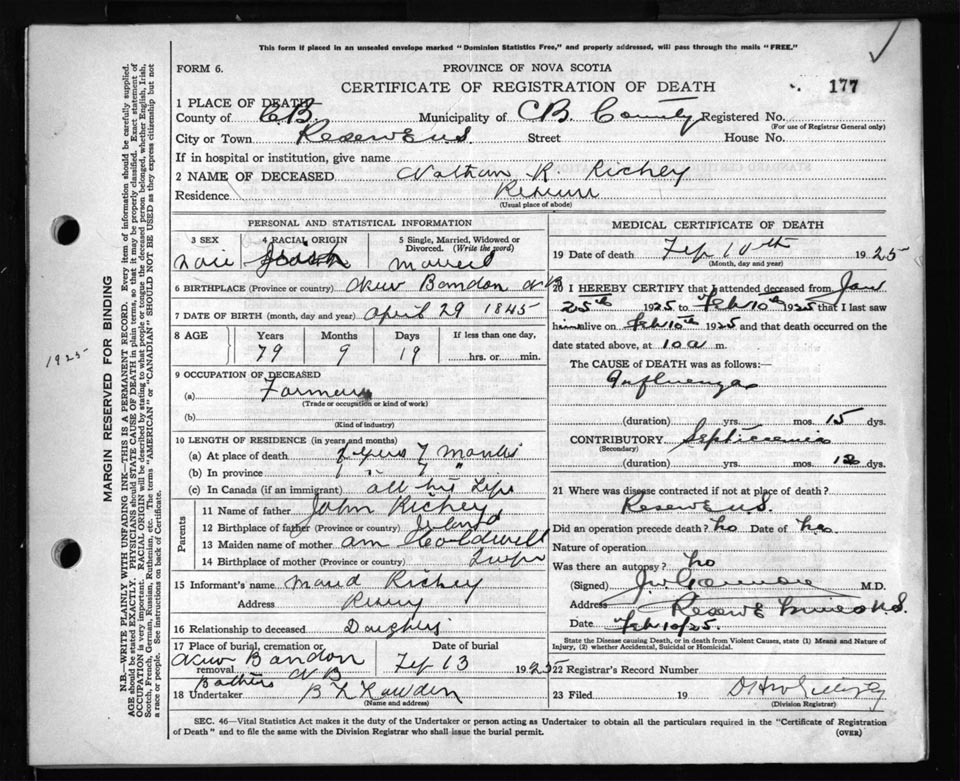 This form if placed in an unsealed envelope marked "Dominion Statistics Free," and properly addressed, will pass through the mails "FREE."
FORM 6.
PROVINCE OF NOVA SCOTIA
CERTIFICATE OF REGISTRATION OF DEATH
177
1 PLACE OF DEATH—
County of C.B. Municipality of C.B. County Registered No.
(For use of Registrar General only)
City or Town Reserve N.S. Street House No.
If in hospital or institution, give name
2 NAME OF DECEASED Nathan R. Richey
Residence Reserve
(Usual place of abode)
PERSONAL AND STATISTICAL INFORMATION
3 SEX 4 RACIAL ORIGIN 5 Single, Married, Widowed or Divorced. (Write the word)
Male Married
6 BIRTHPLACE (Province or country) New Bandon N B
7 DATE OF BIRTH (month, day and year) April 29 1845
8 AGE Years Months Days If less than one day,
79 9 19 hrs. or min.
9 OCCUPATION OF DECEASED
(a) Farmer
(Trade or occupation or kind of work)
(b)
(Kind of industry)
10 LENGTH OF RESIDENCE (in years and months)
(a) At place of death 7 Months
(b) In province 7 "
(c) In Canada (if an immigrant) all his Life
Parents
11 Name of father John Richey
12 Birthplace of father (Province or country) Irland
13 Maiden name of mother Coldwell
14 Birthplace of mother (Province or country)
15 Informant's name Maud Richey
Address
16 Relationship to deceased
17 Place of burial, cremation or removal New Bandon N B Feb 13 1925
18 Undertaker
(Name and address)
MEDICAL CERTIFICATE OF DEATH
19 Date of death Feb 10th 1925
(Month, day and year)
20 I HEREBY CERTIFY that I attended deceased from Jan
25th 1925 to Feb 10th 1925 that I last saw
him alive on Feb 10th 1925 and that death occurred on
date stated above, at 10 a m.
The CAUSE OF DEATH was as follows:
Influenza
(duration) yrs. mos. 15 dys.
CONTRIBUTORY Septicaemia
(Secondary)
(duration) yrs. mos. dys.
21 Where was disease contracted if not at place of death?
Reserve N.S.
Did an operation precede death? no Date of
Nature of operation
Was there an autopsy? no
(Signed) M.D.
Address Reserve Mines N.S.
Date Feb 10/25.
State the Disease causing Death, or in death from Violent Causes, state (1) Means and Nature of Injury, (2) whether Accidental, Suicidal or Homicidal.
22 Registrar's Record Number
23 Filed 19
(Division Registrar)
SEC. 46—Vital Statistics Act makes it the duty of the Undertaker or person acting as Undertaker to obtain all the particulars required in the "Certificate of Registration
of Death" and to file the same with the Division Registrar who shall issue the burial permit.
(OVER)
1925-
MARGIN RESERVED FOR BINDING
N.B.—WRITE PLAINLY WITH UNFADING INK—THIS IS A PERMANENT RECORD. Every item of information should be carefully supplied.
AGE should be stated EXACTLY. PHYSICIANS should STATE CAUSE OF DEATH in plain terms, so that it may be properly classified. Exact statement of
OCCUPATION is very important. RACIAL ORIGIN will be described by stating to what people or tongue the deceased person belonged, whether English, Irish,
Scotch, French, German, Russian, Ruthenian, etc. The terms "AMERICAN" or "CANADIAN" SHOULD NOT BE USED as they express citizenship but not
a race or people. See instructions on back of Certificate.